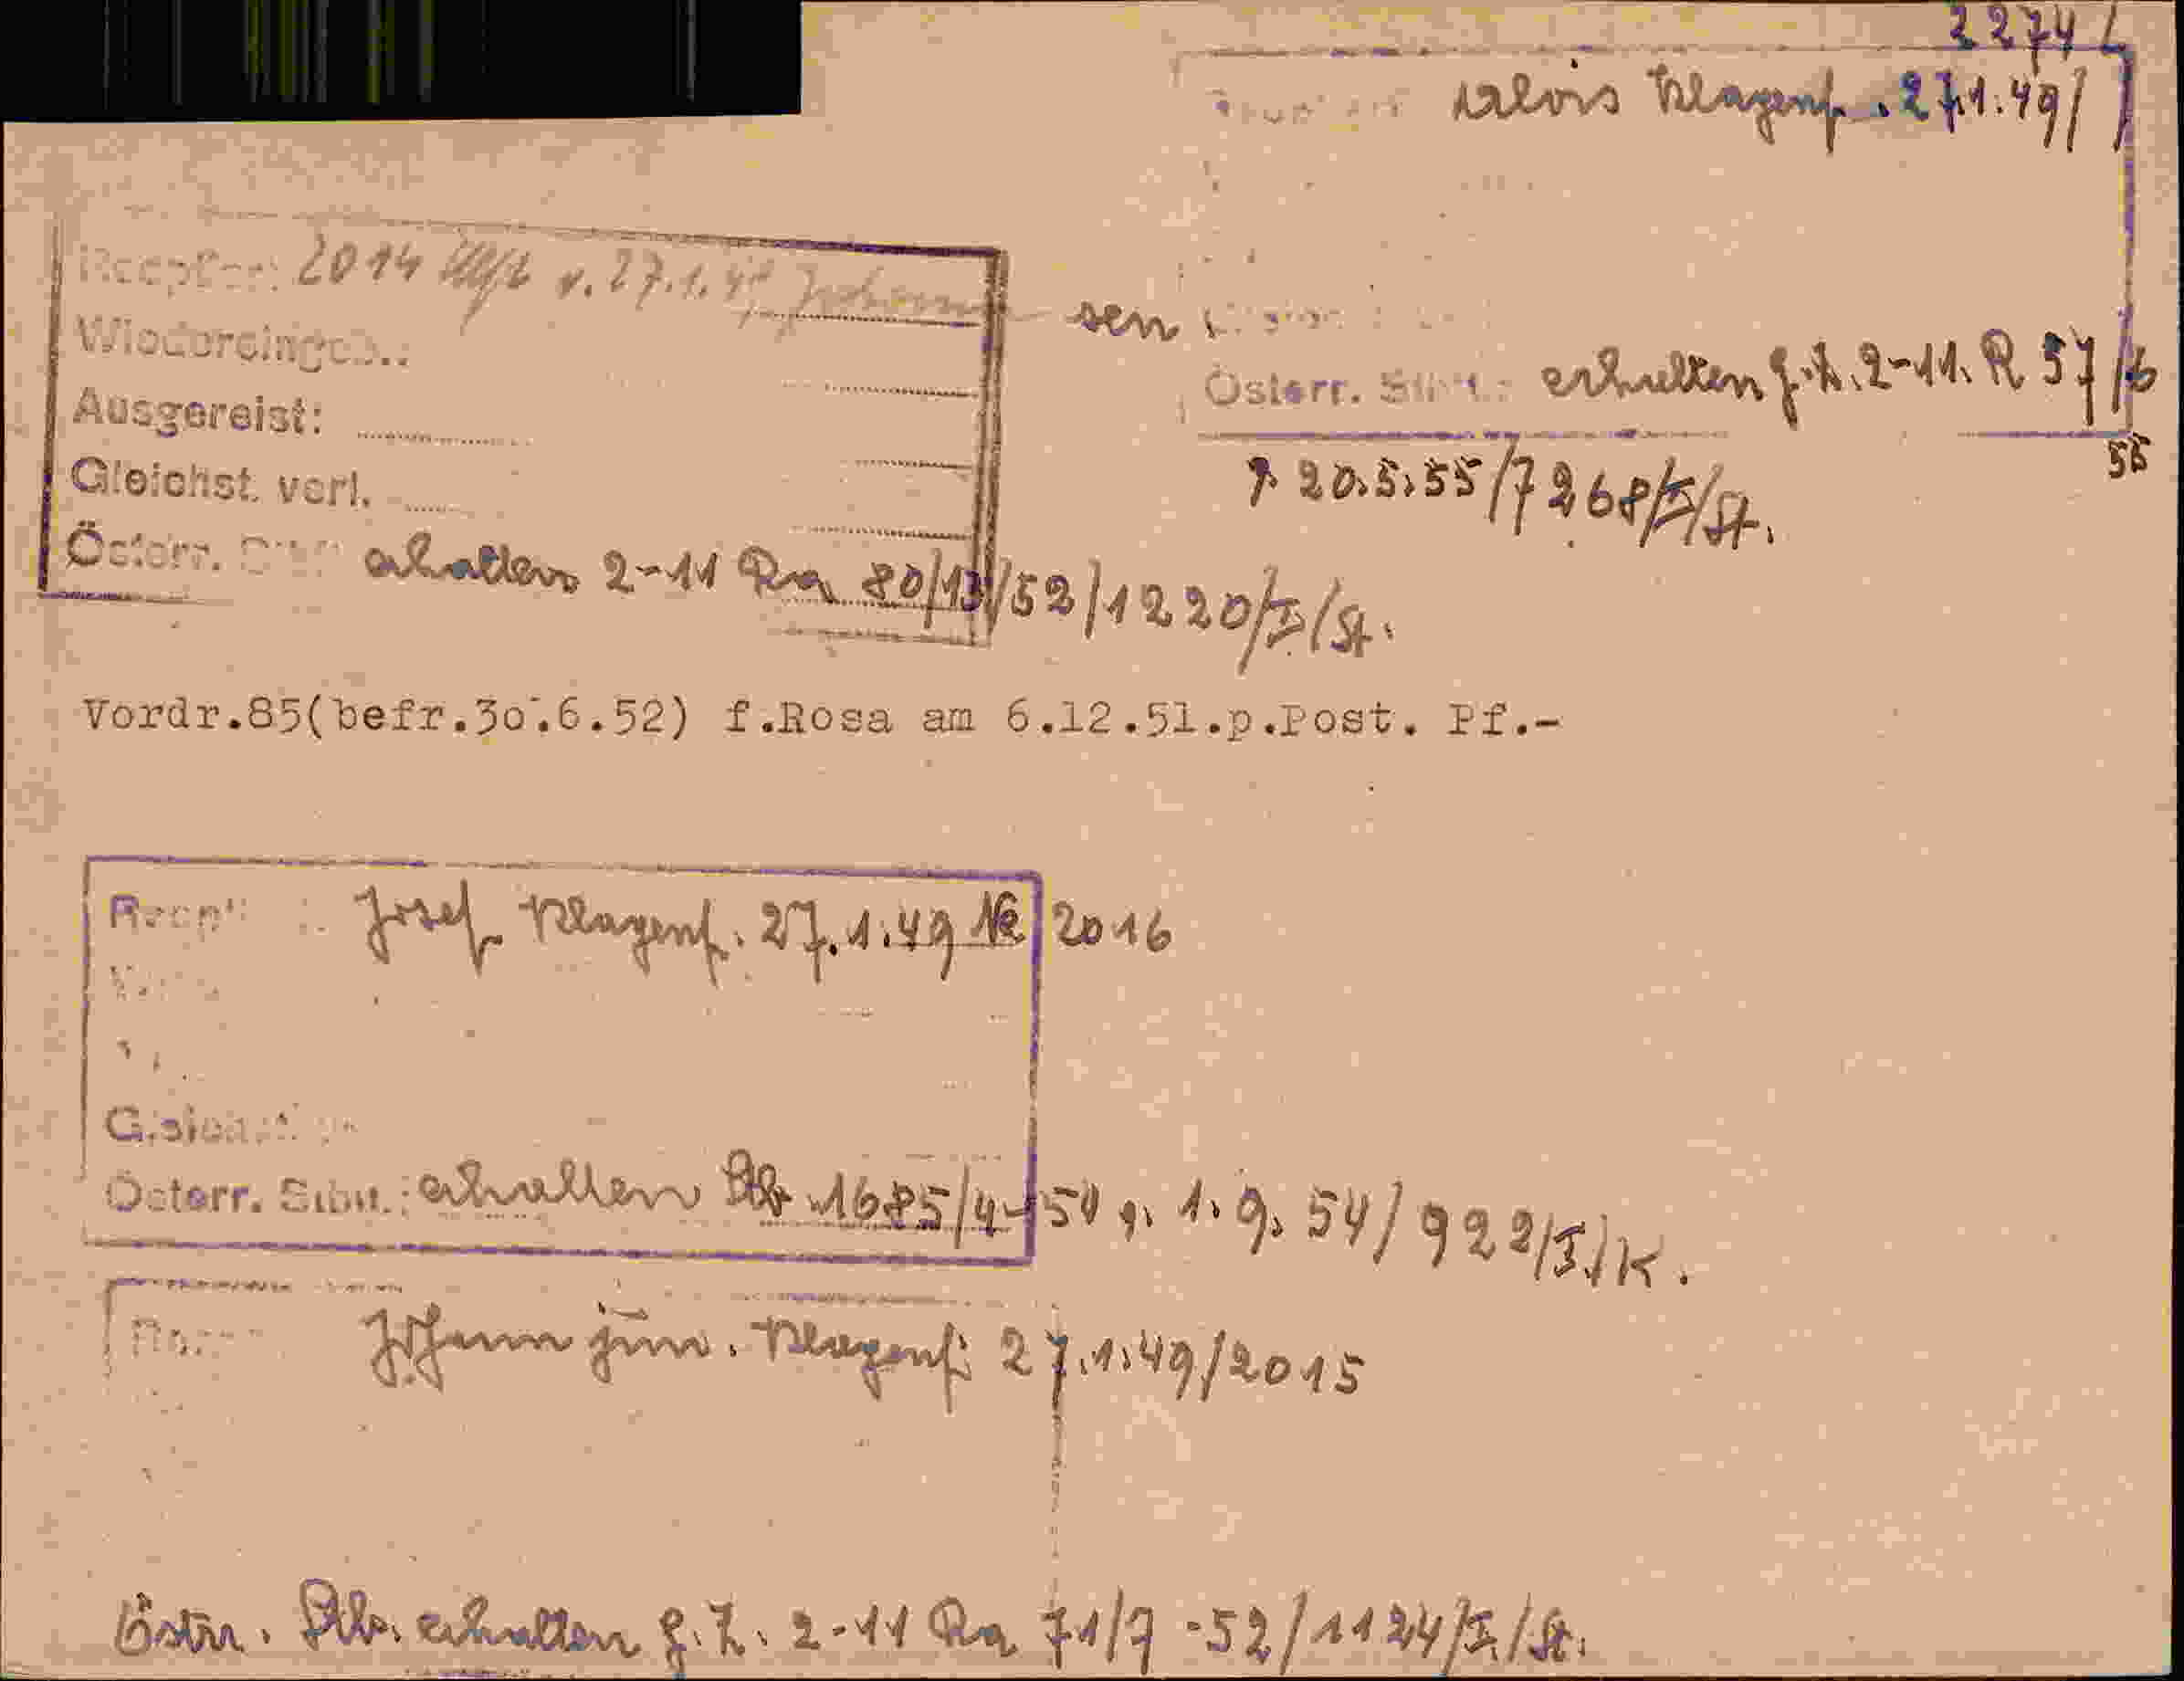 2274
Alois Klagenf. 27.1.49/
2014 v. 27.1.49 Johann sen
Wiedereingeb.:
Ausgereist:
Gleichst. verl.
Österr. erhalten 2-11 Ra 80/13/52/1220/I/St.
Österr. erhalten g.Z. 2-11. R 57/6
55
20.5.55/7268/I/St.
Vordr.85(befr.30.6.52) f.Rosa am 6.12.51.p.Post. Pf.-
Josef Klagenf. 27.1.49 № 2016
Österr. Stbü.: erhalten 1685/4-54 1.9.54/922/I/K.
Johann jun. Klagenf. 27.1.49/2015
Östrr. Stb. erhalten g.Z. 2-11 Ra 71/7-52/1124/I/St.